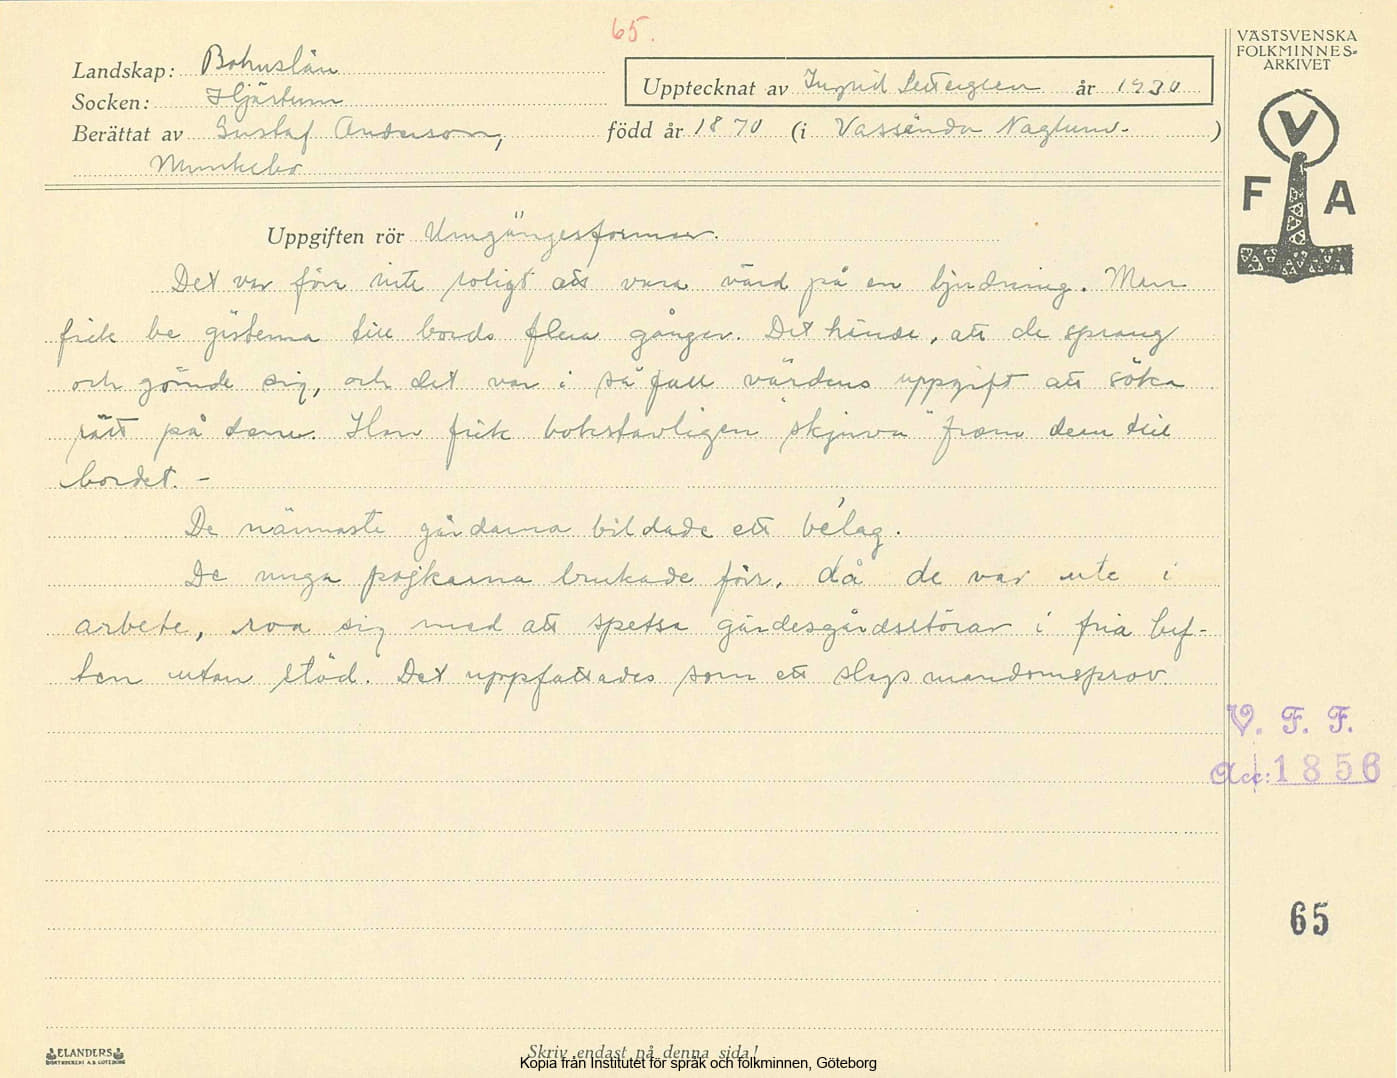 65.
VÄSTSVENSKA
FOLKMINNES-
ARKIVET
Landskap: Bohuslän
Upptecknat av Ingrid år 1930
Socken: Hjärtum
Berättat av Gustaf Anderson, född år 1870 (i Vassända Naglum. )
Munkebo
V
F A
Uppgiften rör Umgängesformer.
Det var förr inte roligt att vara värd på en bjudning. Man
fick be gästerna till bords flera gånger. Det hände, att de sprang
och gömde sig, och det var i så fall värdens uppgift att söka
rätt på dem. Han fick bokstavligen "skjuva" fram dem till
bordet. -
De närmaste gårdarna bildade ett bélag.
De unga pojkarna brukade förr, då de var ute i
arbete, roa sig med att spetsa gärdesgårdsstörar i fria luf-
ten utan stöd. Det uppfattades som ett slags mandomsprov.
V. F. F.
Acc: 1856
65
ELANDERS
BOKTRYCKERI A.B. GÖTEBORG
Skriv endast på denna sida!
Kopia från Institutet för språk och folkminnen, Göteborg